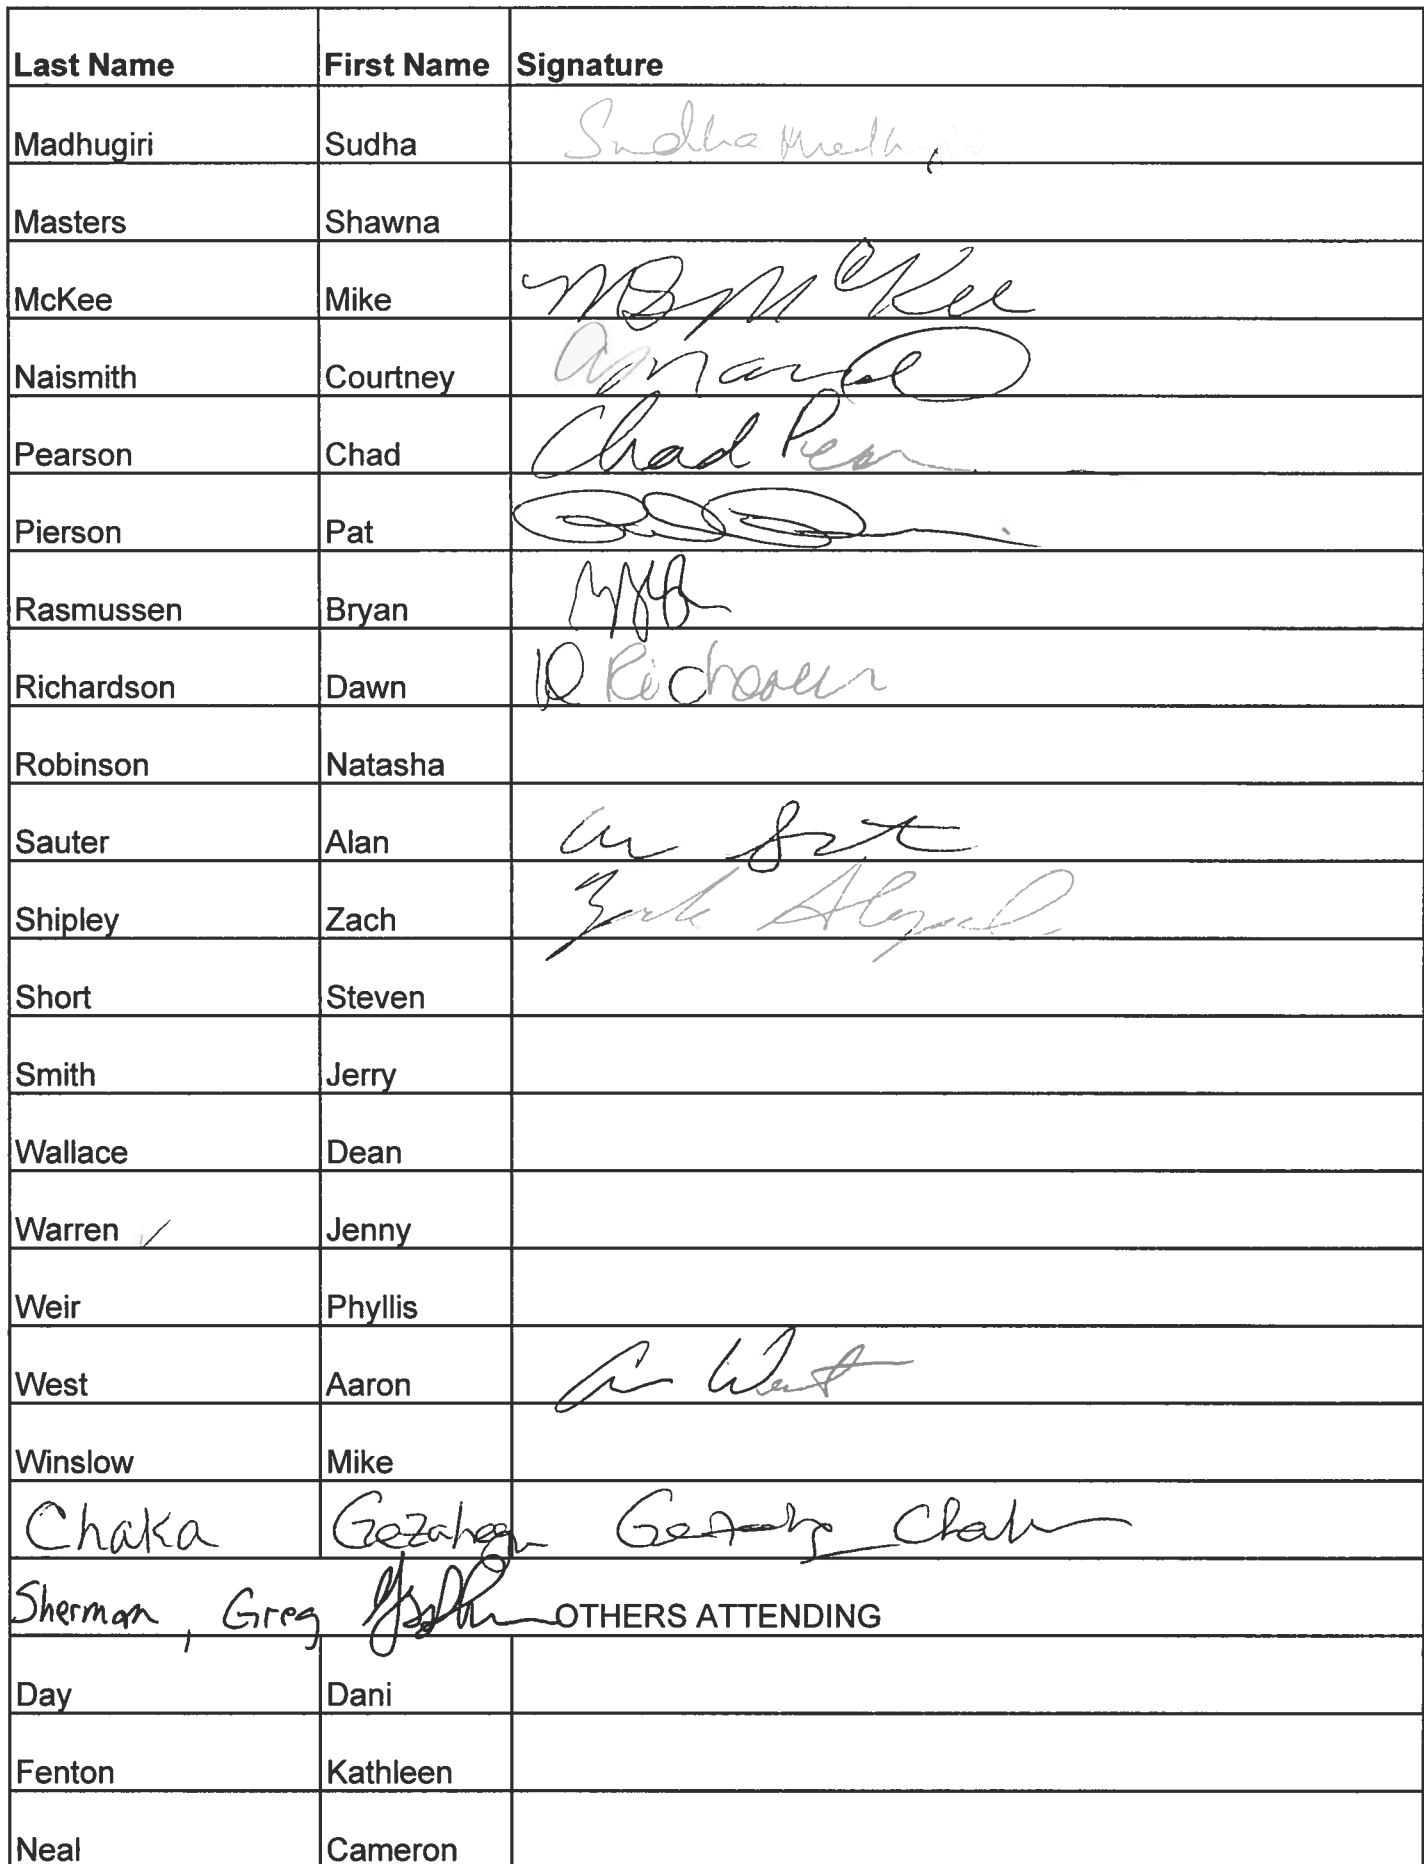 Last Name First Name Signature
Madhugiri Sudha Sudha
Masters Shawna
McKee Mike McKee
Naismith Courtney
Pearson Chad Chad
Pierson Pat
Rasmussen Bryan
Richardson Dawn D
Robinson Natasha
Sauter Alan
Shipley Zach
Short Steven
Smith Jerry
Wallace Dean
Warren Jenny
Weir Phyllis
West Aaron West
Winslow Mike
Chaka Gezahegn
Sherman, Greg OTHERS ATTENDING
Day Dani
Fenton Kathleen
Neal Cameron